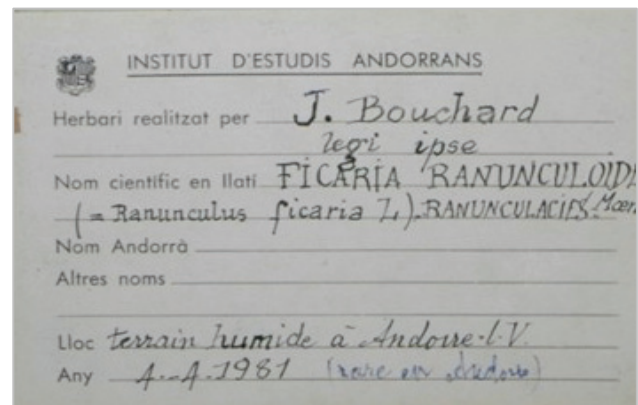 INSTITUT D'ESTUDIS ANDORRANS
Herbari realitzat per J. Bouchard
legi ipse
Nom científic en llatí FICARIA RANUNCULOID
(= Ranunculus ficaria L). RANUNCULACIES Mœn.
Nom Andorrà
Altres noms
Lloc terrain humide à Andorre-l.V.
Any 4-4-1981 (rare en Andorre)